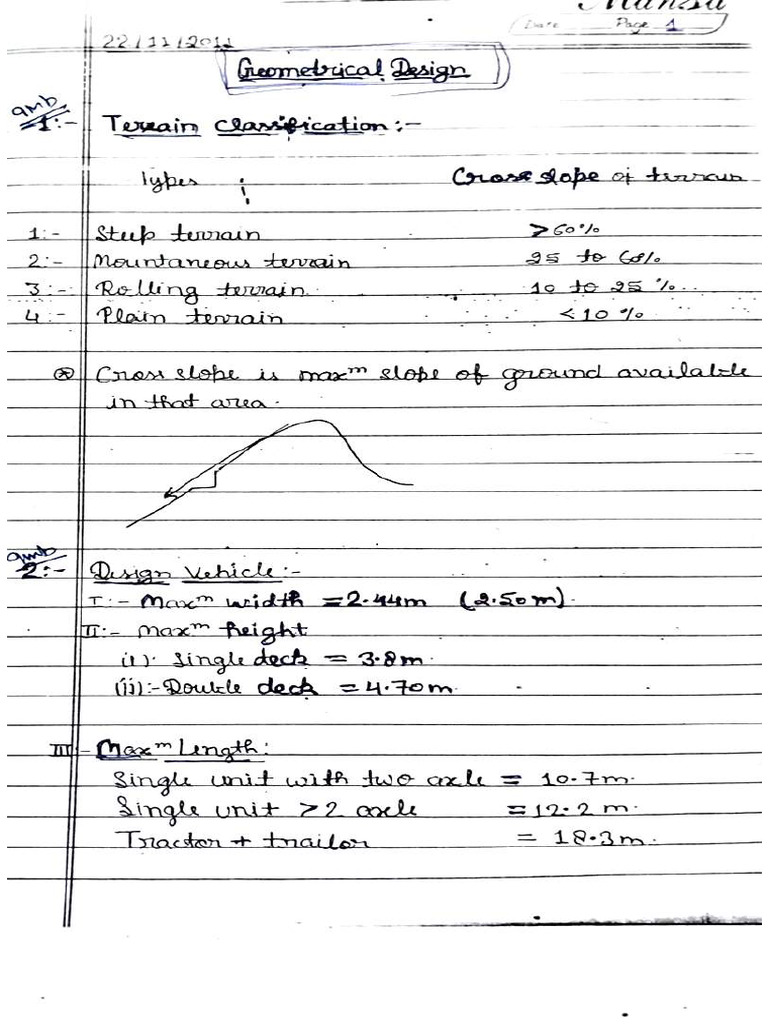 Mansa
Date Page 1
22/11/2011
Geometrical Design
qmb
1:- Terrain classification:-
Types : Cross slope of terrain
1:- Steep terrain >60%
2:- Mountaneous terrain 25 to 60%
3:- Rolling terrain. 10 to 25 %
4:- Plain terrain <10 %
⊛ Cross slope is maxᵐ slope of ground available
in that area.
qmb
2:- Design Vehicle:-
I:- Maxᵐ width = 2.44m (2.50m).
II:- Maxᵐ height
(i). Single deck = 3.8m.
(ii):- Double deck = 4.70m.
III:- Maxᵐ length:
Single unit with two axle = 10.7m.
Single unit >2 axle = 12.2m.
Tractor + trailor = 18.3m.